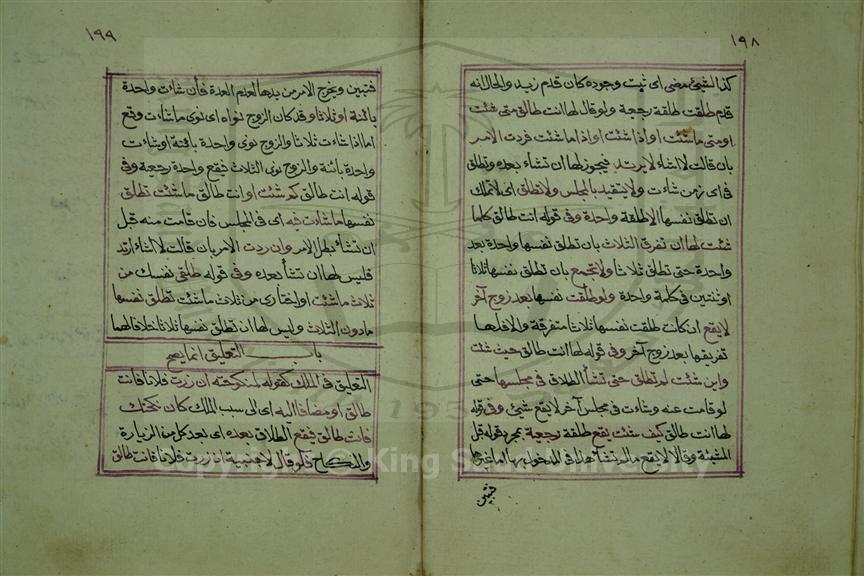 ١٩٨
كذا لشيئ مضى اى ثبت وجوده كان قدم زيد والحال انه
قدم طلقت طلقة رجعية ولو قال لها انت طالق متى شئت
او متى ما شئت او اذا شئت او اذا ما شئت فردت الامر
بان قالت لا اشاء لا يرتد فيجوز لها ان تشاء بعده وتطلق
فى اى زمن شاءت ولا يتقيد بالمجلس ولا تطلق اى لا تملك
ان تطلق نفسها الا طلقة واحدة وفى قوله انت طالق كلما
شئت لها ان تفرق الثلاث بان تطلق نفسها واحدة بعد
واحدة حتى تطلق ثلاثا ولا تجمع بان تطلق نفسها ثلاثا
او ثنتين فى كلمة واحدة ولو طلقت نفسها بعد زوج آخر
لا يقع ان كانت طلقت نفسها ثلاثا متفرقة والا فلها
تفريقها بعد زوج آخر وفى قوله لها انت طالق حيث شئت
واين شئت لم تطلق حتى تشأ الطلاق فى مجلسها حتى
لو قامت عنه وشاءت فى مجلس آخر لا يقع شيئ وفى قوله
لها انت طالق كيف شئت يقع طلقة رجعية بمجرد قوله قبل
المشيئة وقالا لا يقع ما لم تشأ هذا فى المدخول بها اما غيرها
فتبين
١٩٩
فتبين ويخرج الامر من يدها لعدم العدة فأن شاءت واحدة
بائنة او ثلاثا وقد كان الزوج نواه اى نوى ما شاءت وقع
اما اذا شاءت ثلاثا والزوج نوى واحدة بائنة او شاءت
واحدة بائنة والزوج نوى الثلاث فيقع واحدة رجعية وفى
قوله انت طالق كم شئت او انت طالق ما شئت تطلق
نفسها ما شاءت فيه اى فى المجلس فان قامت منه قبل
ان تشاء بطل الامر وان ردت الامر بان قالت لا اشاء ارتد
فليس لها ان تشأ بعده وفى قوله طلقى نفسك من
ثلاث ما شئت او اختارى من ثلاث ما شئت تطلق نفسها
ما دون الثلاث وليس لها ان تطلق نفسها ثلاثا خلافا لهما
باب التعليق انما يصح
التعليق فى الملك كقوله لمنكوحته ان زرت فلانا فانت
طالق او مضافا اليه اى الى سبب الملك كان نكحتك
فانت طالق فيقع الطلاق بعده اى بعد كل من الزيارة
والنكاح فلو قال لاجنبية ان زرت فلانا فانت طالق
Copyright © King Saud University
1957